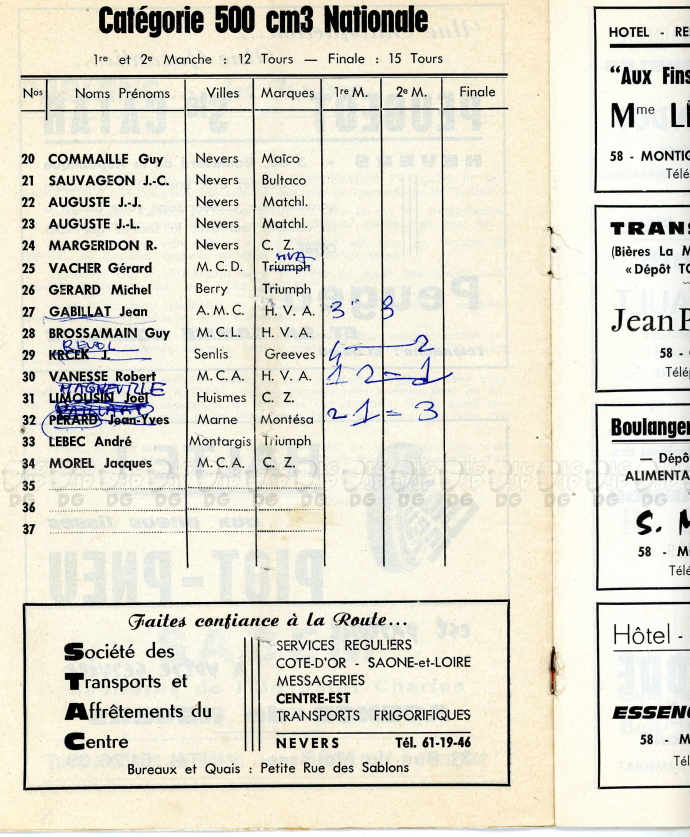 Catégorie 500 cm3 Nationale
1re et 2e Manche : 12 Tours — Finale : 15 Tours
Nos Noms Prénoms Villes Marques 1re M. 2e M. Finale
20 COMMAILLE Guy Nevers Maïco
21 SAUVAGEON J.-C. Nevers Bultaco
22 AUGUSTE J.-J. Nevers Matchl.
23 AUGUSTE J.-L. Nevers Matchl.
24 MARGERIDON R. Nevers C. Z.
HVA
25 VACHER Gérard M.C.D. Triumph
26 GERARD Michel Berry Triumph
27 GABILLAT Jean A.M.C. H.V.A. 3" 3
28 BROSSAMAIN Guy M.C.L. H.V.A.
REVOL
29 KRCEK J. Senlis Greeves 4 — 2
30 VANESSE Robert M.C.A. H.V.A. 1 2 - 1
MAGNEVILLE
31 LIMOUSIN Joël Huismes C. Z.
32 PERARD Jean-Yves Marne Montésa 2 1 = 3
33 LEBEC André Montargis Triumph
34 MOREL Jacques M.C.A. C. Z.
35
36
37
Faites confiance à la Route...
Société des
Transports et
Affrêtements du
Centre
SERVICES REGULIERS
COTE-D'OR - SAONE-et-LOIRE
MESSAGERIES
CENTRE-EST
TRANSPORTS FRIGORIFIQUES
NEVERS Tél. 61-19-46
Bureaux et Quais : Petite Rue des Sablons
HOTEL - RE
"Aux Fins
Mme L
58 - MONTIG
Télé
TRANS
(Bières La M
« Dépôt TO
Jean P
58 -
Télép
Boulanger
— Dépô
ALIMENTA
S. M
58 - M
Télé
Hôtel -
ESSENC
58 - M
Tél